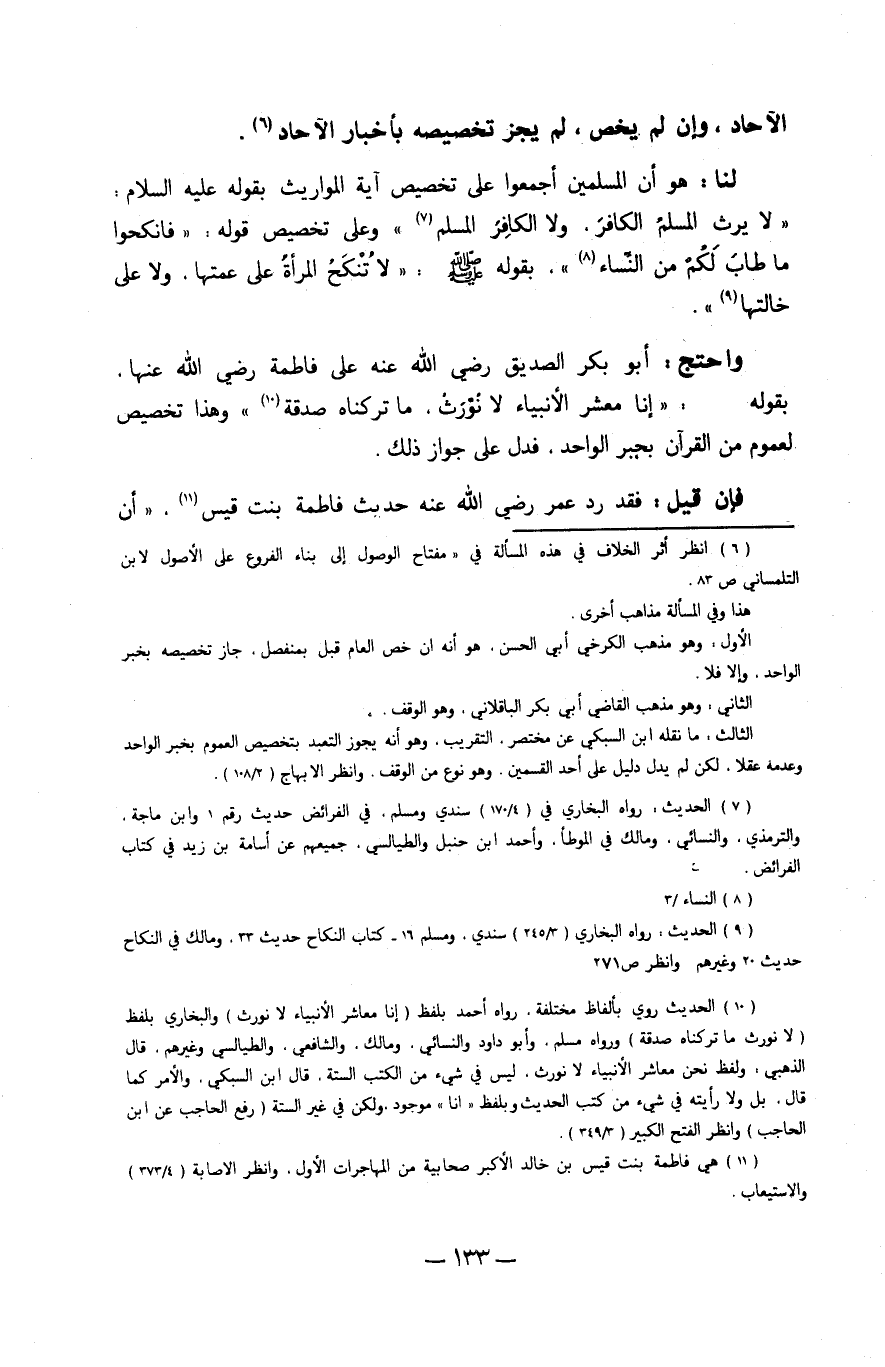 الآحاد ، وإن لم يخص ، لم يجز تخصيصه بأخبار الآحاد (٦) .
لنا : هو أن المسلمين أجمعوا على تخصيص آية المواريث بقوله عليه السلام :
« لا يرث المسلمُ الكافرَ . ولا الكافِرُ المسلم (٧) » وعلى تخصيص قوله : « فانكحوا
ما طابَ لَكُمْ من النِّساء (٨) » . بقوله ﷺ : « لا تُنْكَحُ المرأةُ على عمتها . ولا على
خالتها (٩) » .
واحتج : أبو بكر الصديق رضي الله عنه على فاطمة رضي الله عنها .
بقوله : « إنا معشر الأنبياء لا نُوْرَثْ . ما تركناه صدقة (١٠) » وهذا تخصيص
لعموم من القرآن بجبر الواحد . فدل على جواز ذلك .
فإن قيل : فقد رد عمر رضي الله عنه حديث فاطمة بنت قيس (١١) . « أن
( ٦ ) انظر أثر الخلاف في هذه المسألة في « مفتاح الوصول إلى بناء الفروع على الأصول لابن
التلمساني ص ٨٣ .
هذا وفي المسألة مذاهب أخرى .
الأول : وهو مذهب الكرخي أبي الحسن . هو أنه ان خص العام قبل بمنفصل . جاز تخصيصه بخبر
الواحد . وإلا فلا .
الثاني : وهو مذهب القاضي أبي بكر الباقلاني . وهو الوقف .
الثالث : ما نقله ابن السبكي عن مختصر . التقريب . وهو أنه يجوز التعبد بتخصيص العموم بخبر الواحد
وعدمة عقلا . لكن لم يدل دليل على أحد القسمين . وهو نوع من الوقف . وانظر الابهاج ( ١٠٨/٢ ) .
( ٧ ) الحديث : رواه البخاري في ( ١٧٠/٤ ) سندي ومسلم . في الفرائض حديث رقم ١ وابن ماجة .
والترمذي . والنسائي . ومالك في الموطأ . وأحمد ابن حنبل والطيالسي . جميعهم عن أسامة بن زيد في كتاب
الفرائض .
( ٨ ) النساء /٣
( ٩ ) الحديث : رواه البخاري ( ٢٤٥/٣ ) سندي . ومسلم ١٦ ـ كتاب النكاح حديث ٣٣ . ومالك في النكاح
حديث ٢٠ وغيرهم وانظر ص ٢٧١
( ١٠ ) الحديث روي بألفاظ مختلفة . رواه أحمد بلفظ ( إنا معاشر الأنبياء لا نورث ) والبخاري بلفظ
( لا نورث ما تركناه صدقة ) ورواه مسلم . وأبو داود والنسائي . ومالك . والشافعي . والطيالسي وغيرهم . قال
الذهبي : ولفظ نحن معاشر الأنبياء لا نورث . ليس في شيء من الكتب الستة . قال ابن السبكي . والأمر كما
قال . بل ولا رأيته في شيء من كتب الحديث وبلفظ « انا » موجود . ولكن في غير الستة ( رفع الحاجب عن ابن
الحاجب ) وانظر الفتح الكبير ( ٣٤٩/٣ ) .
( ١١ ) هي فاطمة بنت قيس بن خالد الأكبر صحابية من المهاجرات الأول . وانظر الاصابة ( ٣٧٣/٤ )
والاستيعاب .
— ١٣٣ —